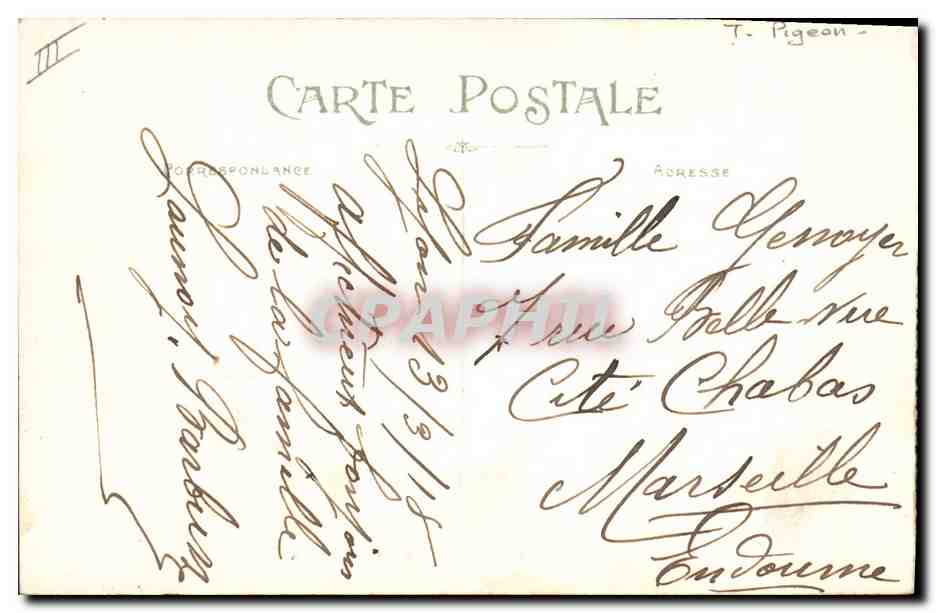 III
T. Pigeon -
CARTE POSTALE
CORRESPONDANCE
ADRESSE
Lyon 13/3/18
affectueux
de la famille
Launoy, Barbuez
Famille Genoyer
7 rue Belle vue
Cité Chabas
Marseille
Endoume
CPAPHIL